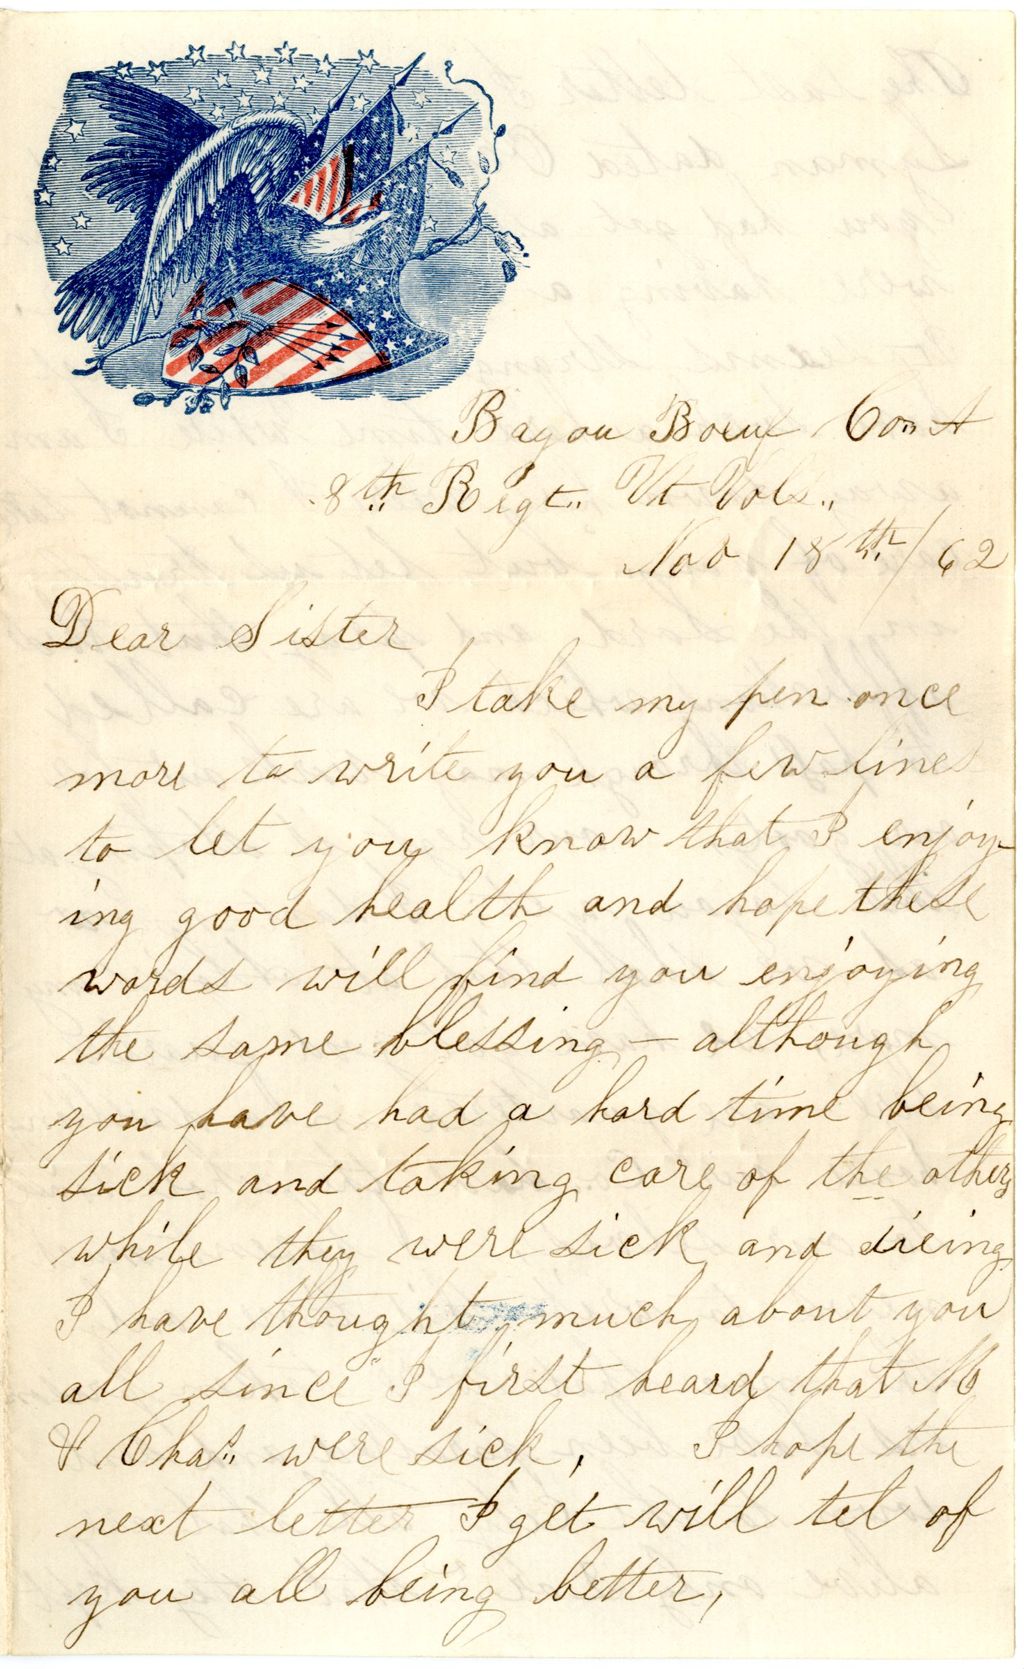 Bayou Boeuf Com A
8th Regt. Vt Vols.,
Nov 18th/62
Dear Sister
I take my pen once
more to write you a few lines
to let you know that I enjoy-
ing good health and hope these
words will find you enjoying
the same blessing — although
you have had a hard time being
sick and taking care of the others
while they were sick and dieing
I have thought much about you
all since I first heard that M
& Chas. were sick, I hope the
next letter I get will tel of
you all being better,